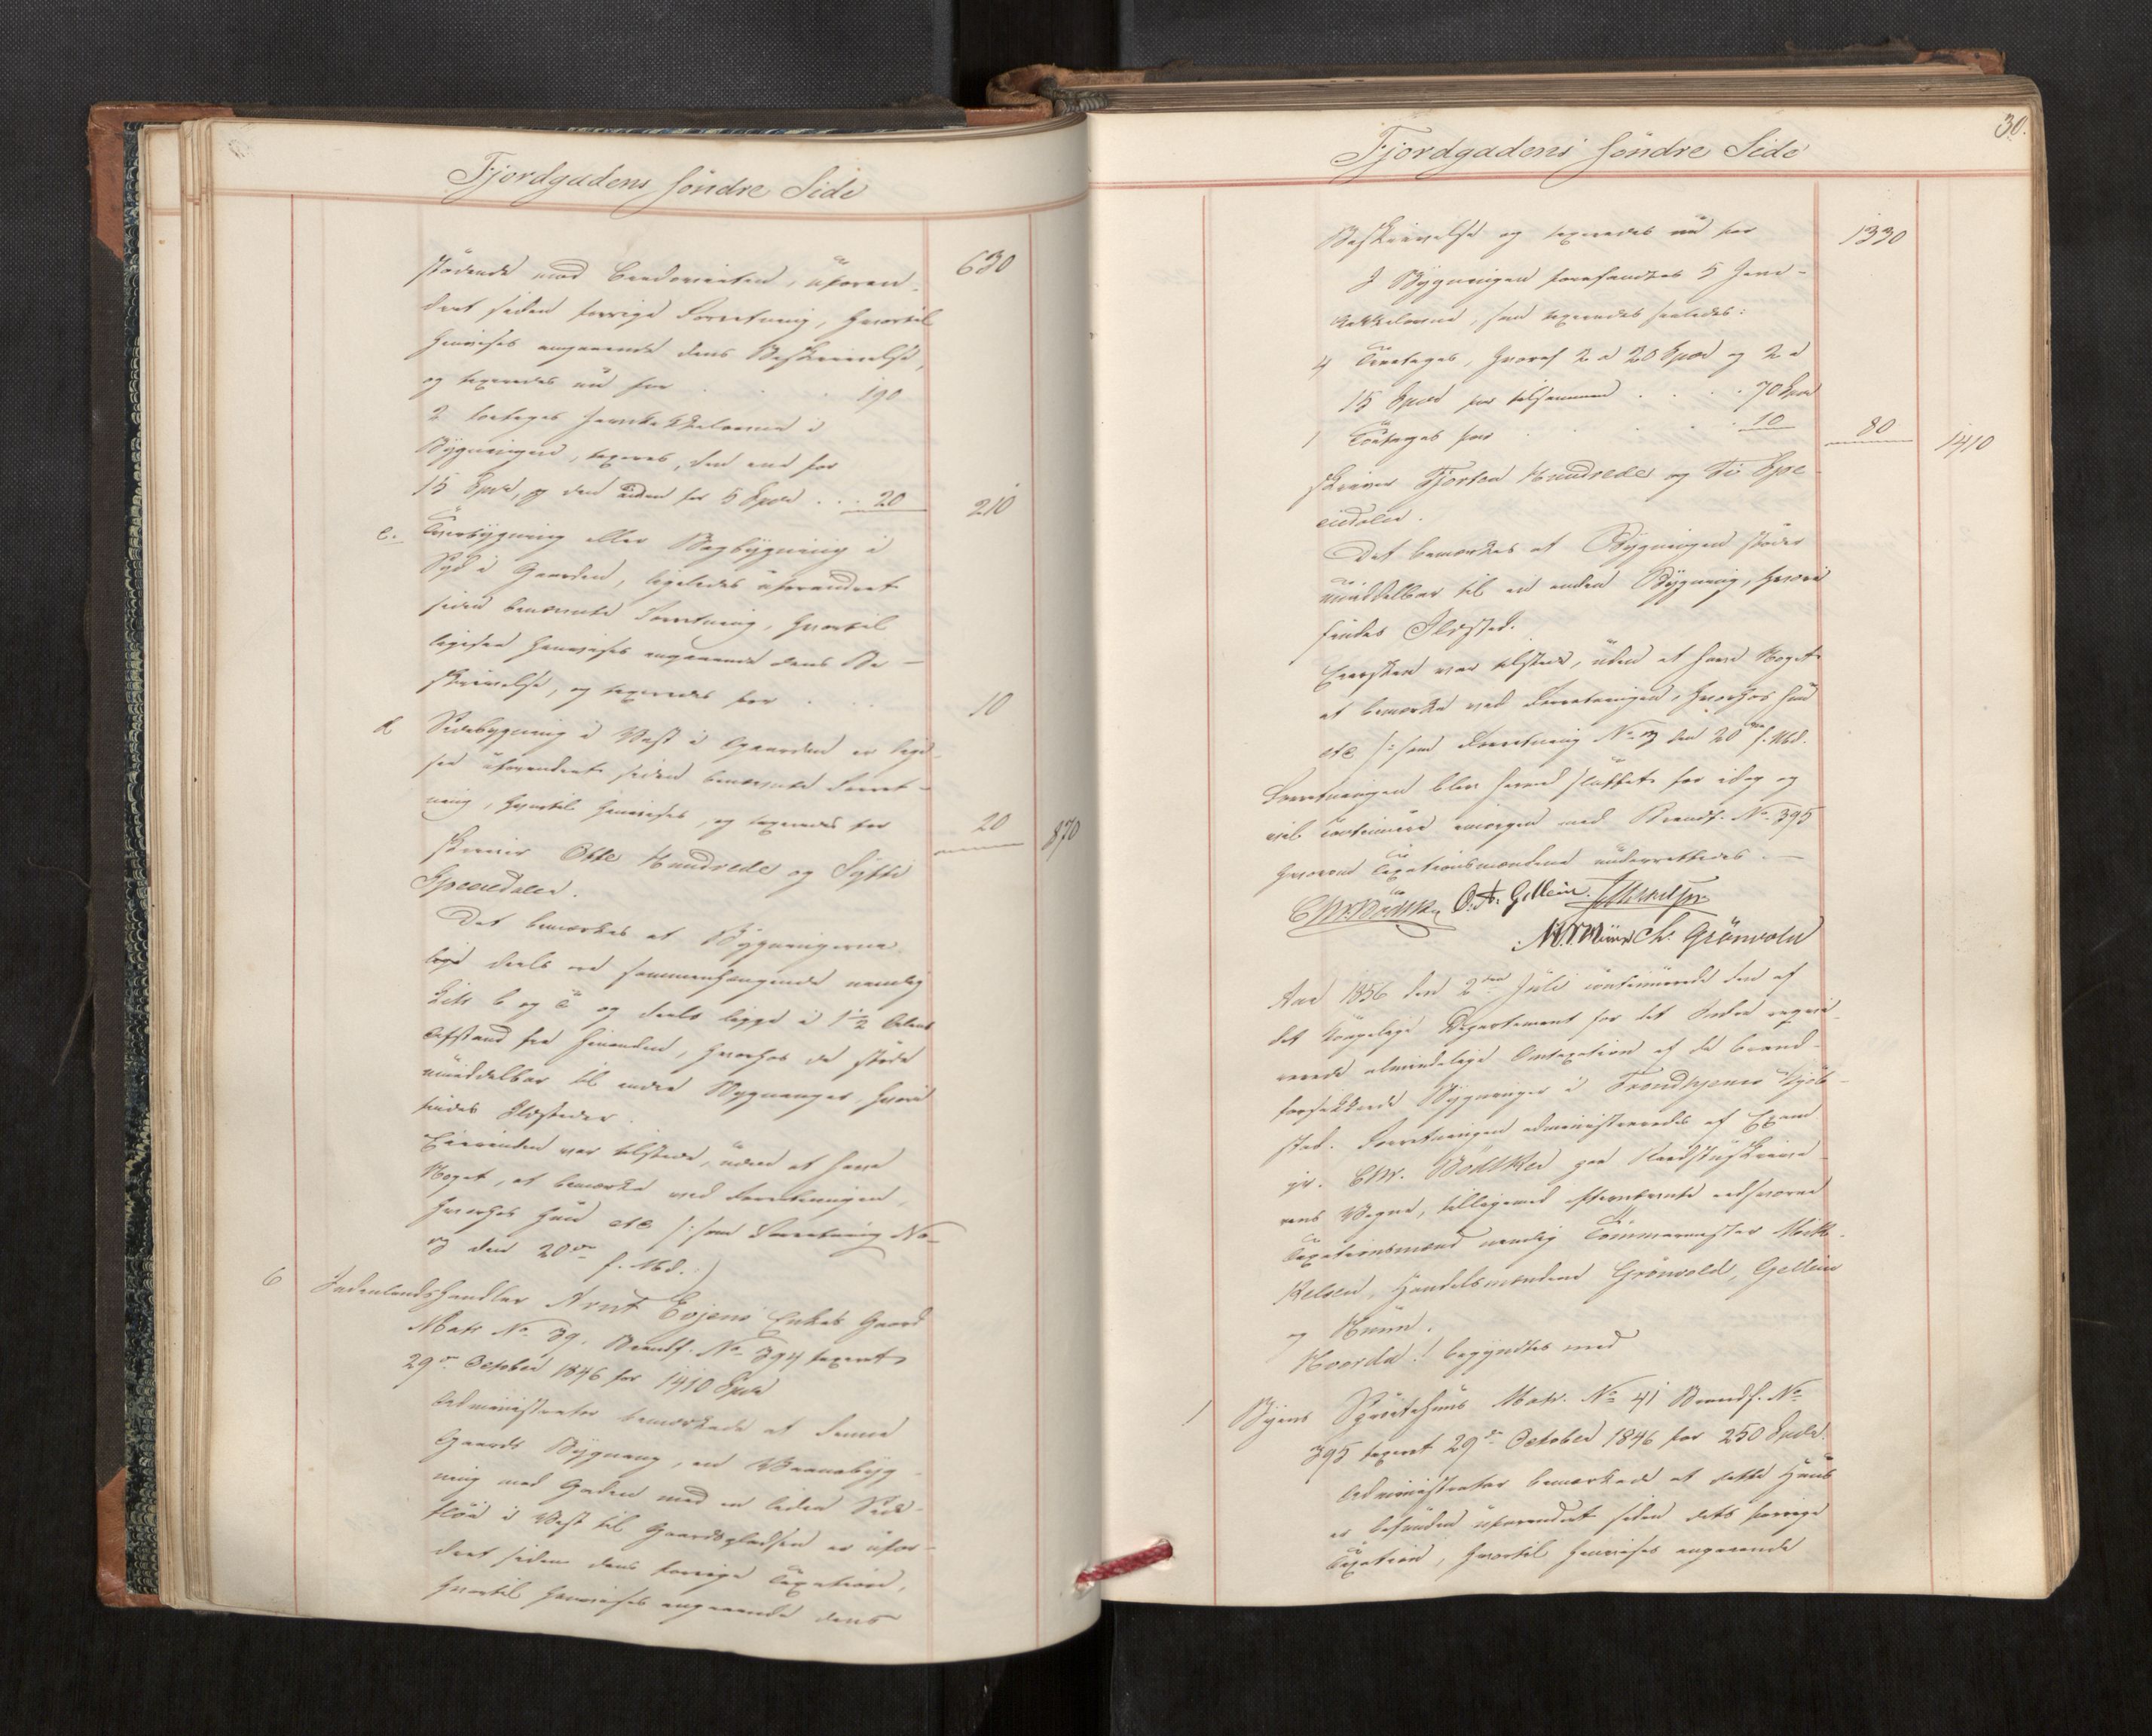 Fjordgadens söndre Side
stødende mod Brandveiten, uforan- 630
dret siden forrige Forretning, hvortil
henvises angaaende dens Beskrivelse,
og taxeredes nu for . . . 190
2 toetages Jernkakkelovne i
Bygningen, taxeres, den ene for
15 Spd, og den anden for 5 Spd . . 20 210
c. Tverbygning eller Bagbygning i
Syd i Gaarden, ligeledes uforandret
siden benævnte Forretning, hvortil
ligesaa henvises angaaende dens Be-
skrivelse, og taxeredes for . . . 10
d Sidebygning i Vest i Gaarden er lige-
saa uforandret siden benævnte Forret-
ning, hvortil henvises, og taxeredes for 20 870
skriver Otte Hundrede og Sytti
Speciedaler.
Det bemærkes at Bygningerne
deels ere sammenhængende nemlig
Litr b og c og deels ligge i 1½ Alens
Afstand fra hinanden, hvorhos de støde
umiddelbar til andre Bygninger, hvori
findes Ildsteder.
Eierinden var tilstede, uden at have
Noget, at bemærke ved Forretningen,
hvorhos hun etc /: som Forretning No
3 den 20de f. Md. :/
6 Indenlandshandler Arnt Eojens Enkes Gaard
Matr No 39. Brandf. No 394 taxeret
29de October 1846 for 1410 Spd
Administrator bemærkede at denne
Gaards Bygning, en Vaanebyg-
ning mod Gaden med en liden Side-
fløi i Vest til Gaardspladsen er ufor-
dret siden dens forrige Taxation,
hvortil henvises angaaende dens
30.
Fjordgadens söndre Side
Beskrivelse og taxeredes nu for 1330
I Bygningen forefandtes 5 Jern-
kakkelovne, som taxeredes saaledes:
4 Treetages, hvoraf 2 a 20 Spd og 2 a
15 Spd for tilsammen . . . 70 Spd
1 Toetages for . . . 10 80 1410
skriver Fjorten Hundrede og Ti Spe
ciedaler.
Det bemærkes at Bygningen støder
umiddelbar til en anden Bygning, hvori
findes Ildsted.
Eiersken var tilstede, uden at have Noget
at bemærke ved Forretningen, hvorhos hun
etc /: som Forretning No 3 den 20de f. Md.
Forretningen blev herved sluttet for idag og
vil continuere imorgen med Brandf. No 395
hvorom Taxationsmændene underrettedes.
Chr. Bödtker O. A. Gellein
Ch. Grönvold
Aar 1856 den 2den Juli continuerede den af
det Kongelige Departement for det Indre reqvi-
rerede almindelige Omtaxation af de brand-
forsikkrede Bygninger i Trondhjems Kjöb-
stad. Forretningen administreredes af Exam.
jur. Chr. Bödtker paa Raadstueskrive-
rens Vegne, tilligemed efternævnte eedsvorne
Taxationsmænd nemlig Tömmermester Mik-
kelsen, Handelsmændene Grönvold, Gellein
og
Hvorda! begyndtes med
1 Byens Spröitehuus Matr. No 41 Brandf. No
395 taxeret 29de October 1846 for 250 Spd.
Administrator bemærkede at dette Huus
er befunden uforandret siden dets forrige
Taxation, hvortil henvises angaaende